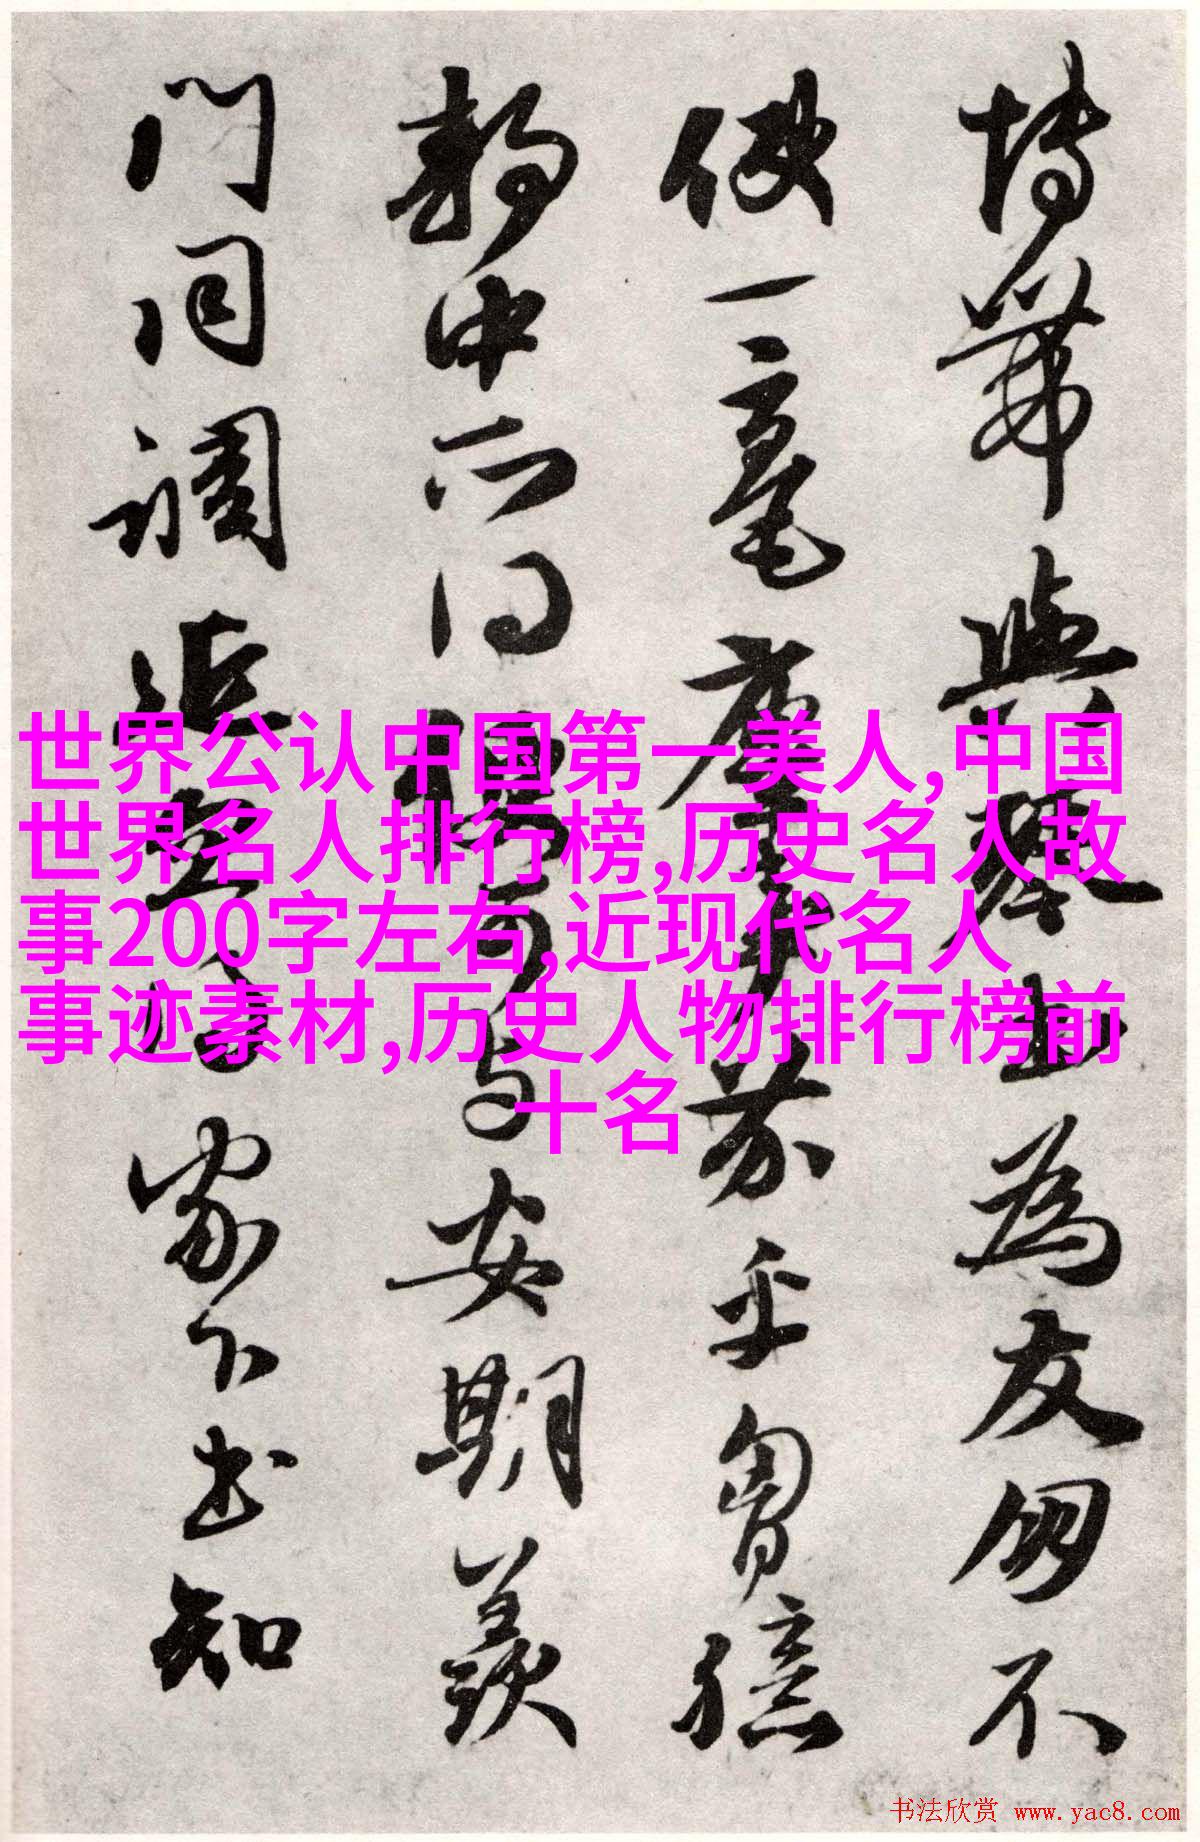 世界公认中国第一美人,中国
世界名人排行榜,历史名人故
事200字左右,近现代名人
事迹素材,历史人物排行榜前
十名
與琴為友不
使一毫塵芥乎胸臆
静中所得可与安期羡
門同調家下書知
书法欣赏 www.yac8.com